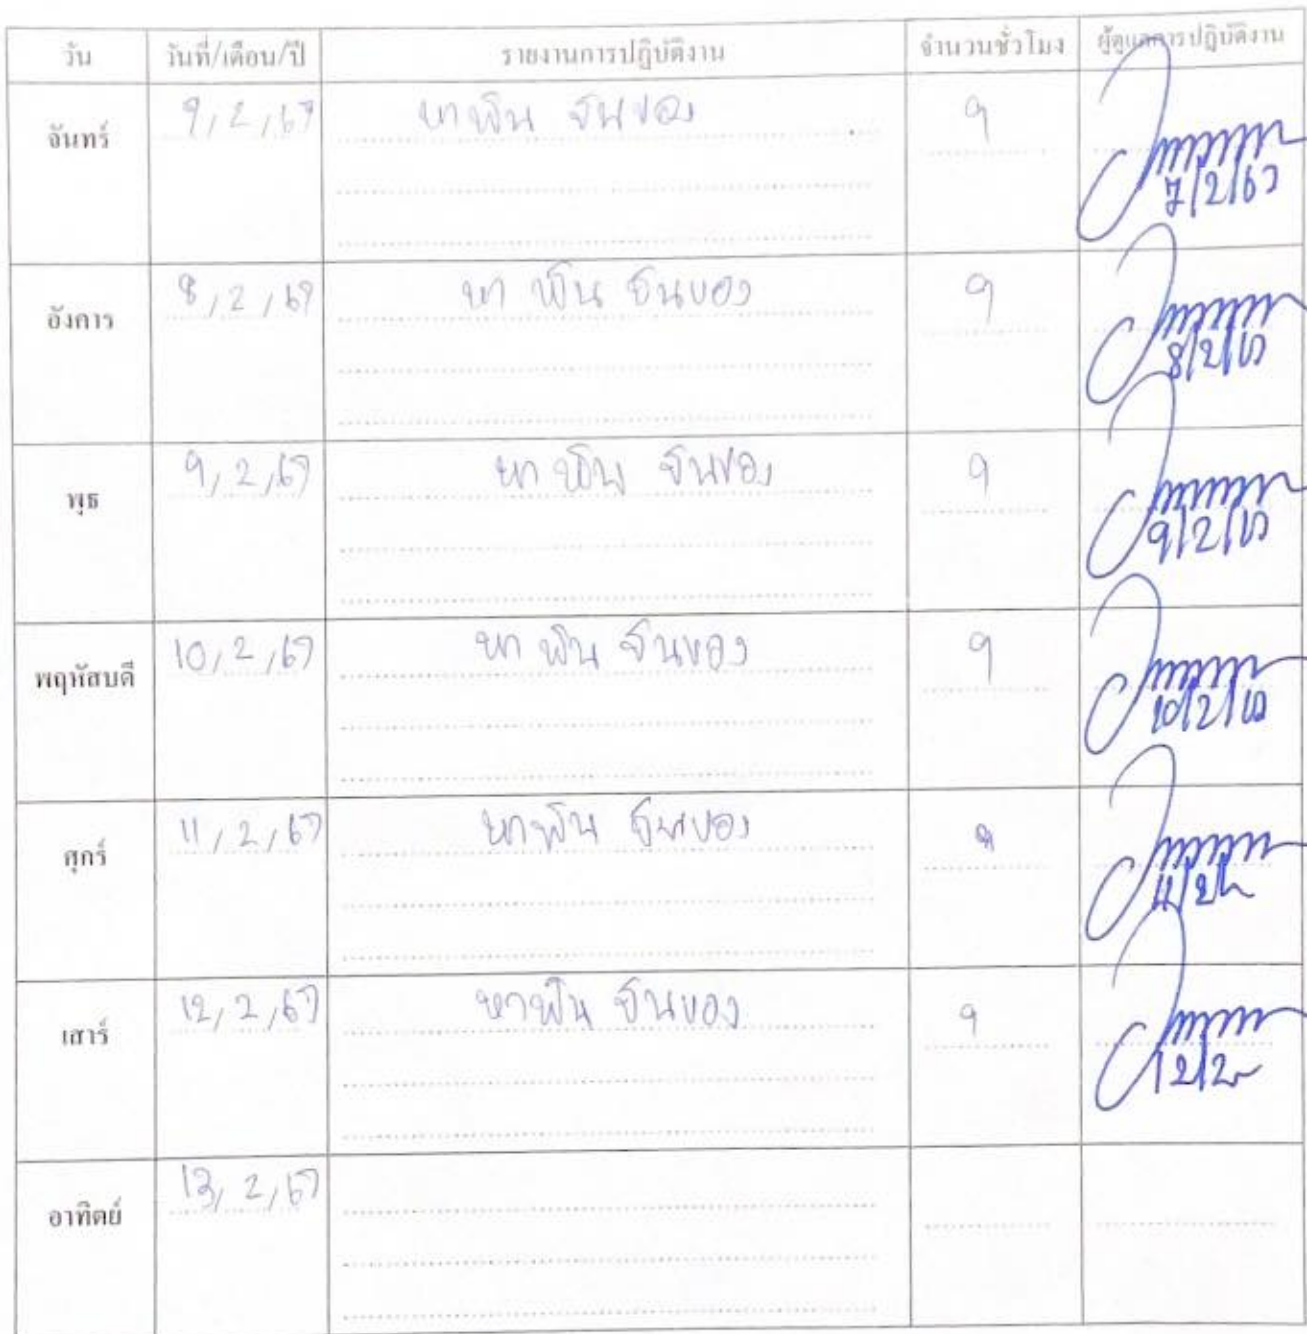 วัน วันที่/เดือน/ปี รายงานการปฏิบัติงาน จำนวนชั่วโมง ผู้ดูแลการปฏิบัติงาน
จันทร์ 7/2/67 หาพิน ยืนของ 9
7/2/67
อังการ 8/2/67 หา พิน ยืนของ 9
8/2/67
พุธ 9/2/67 หา พิน ยืนของ 9
9/2/67
พฤหัสบดี 10/2/67 หา พิน ยืนของ 9
10/2/67
ศุกร์ 11/2/67 หาพิน ยืนของ 9
11/2
เสาร์ 12/2/67 หาพิน ยืนของ 9
12/2
อาทิตย์ 13/2/67